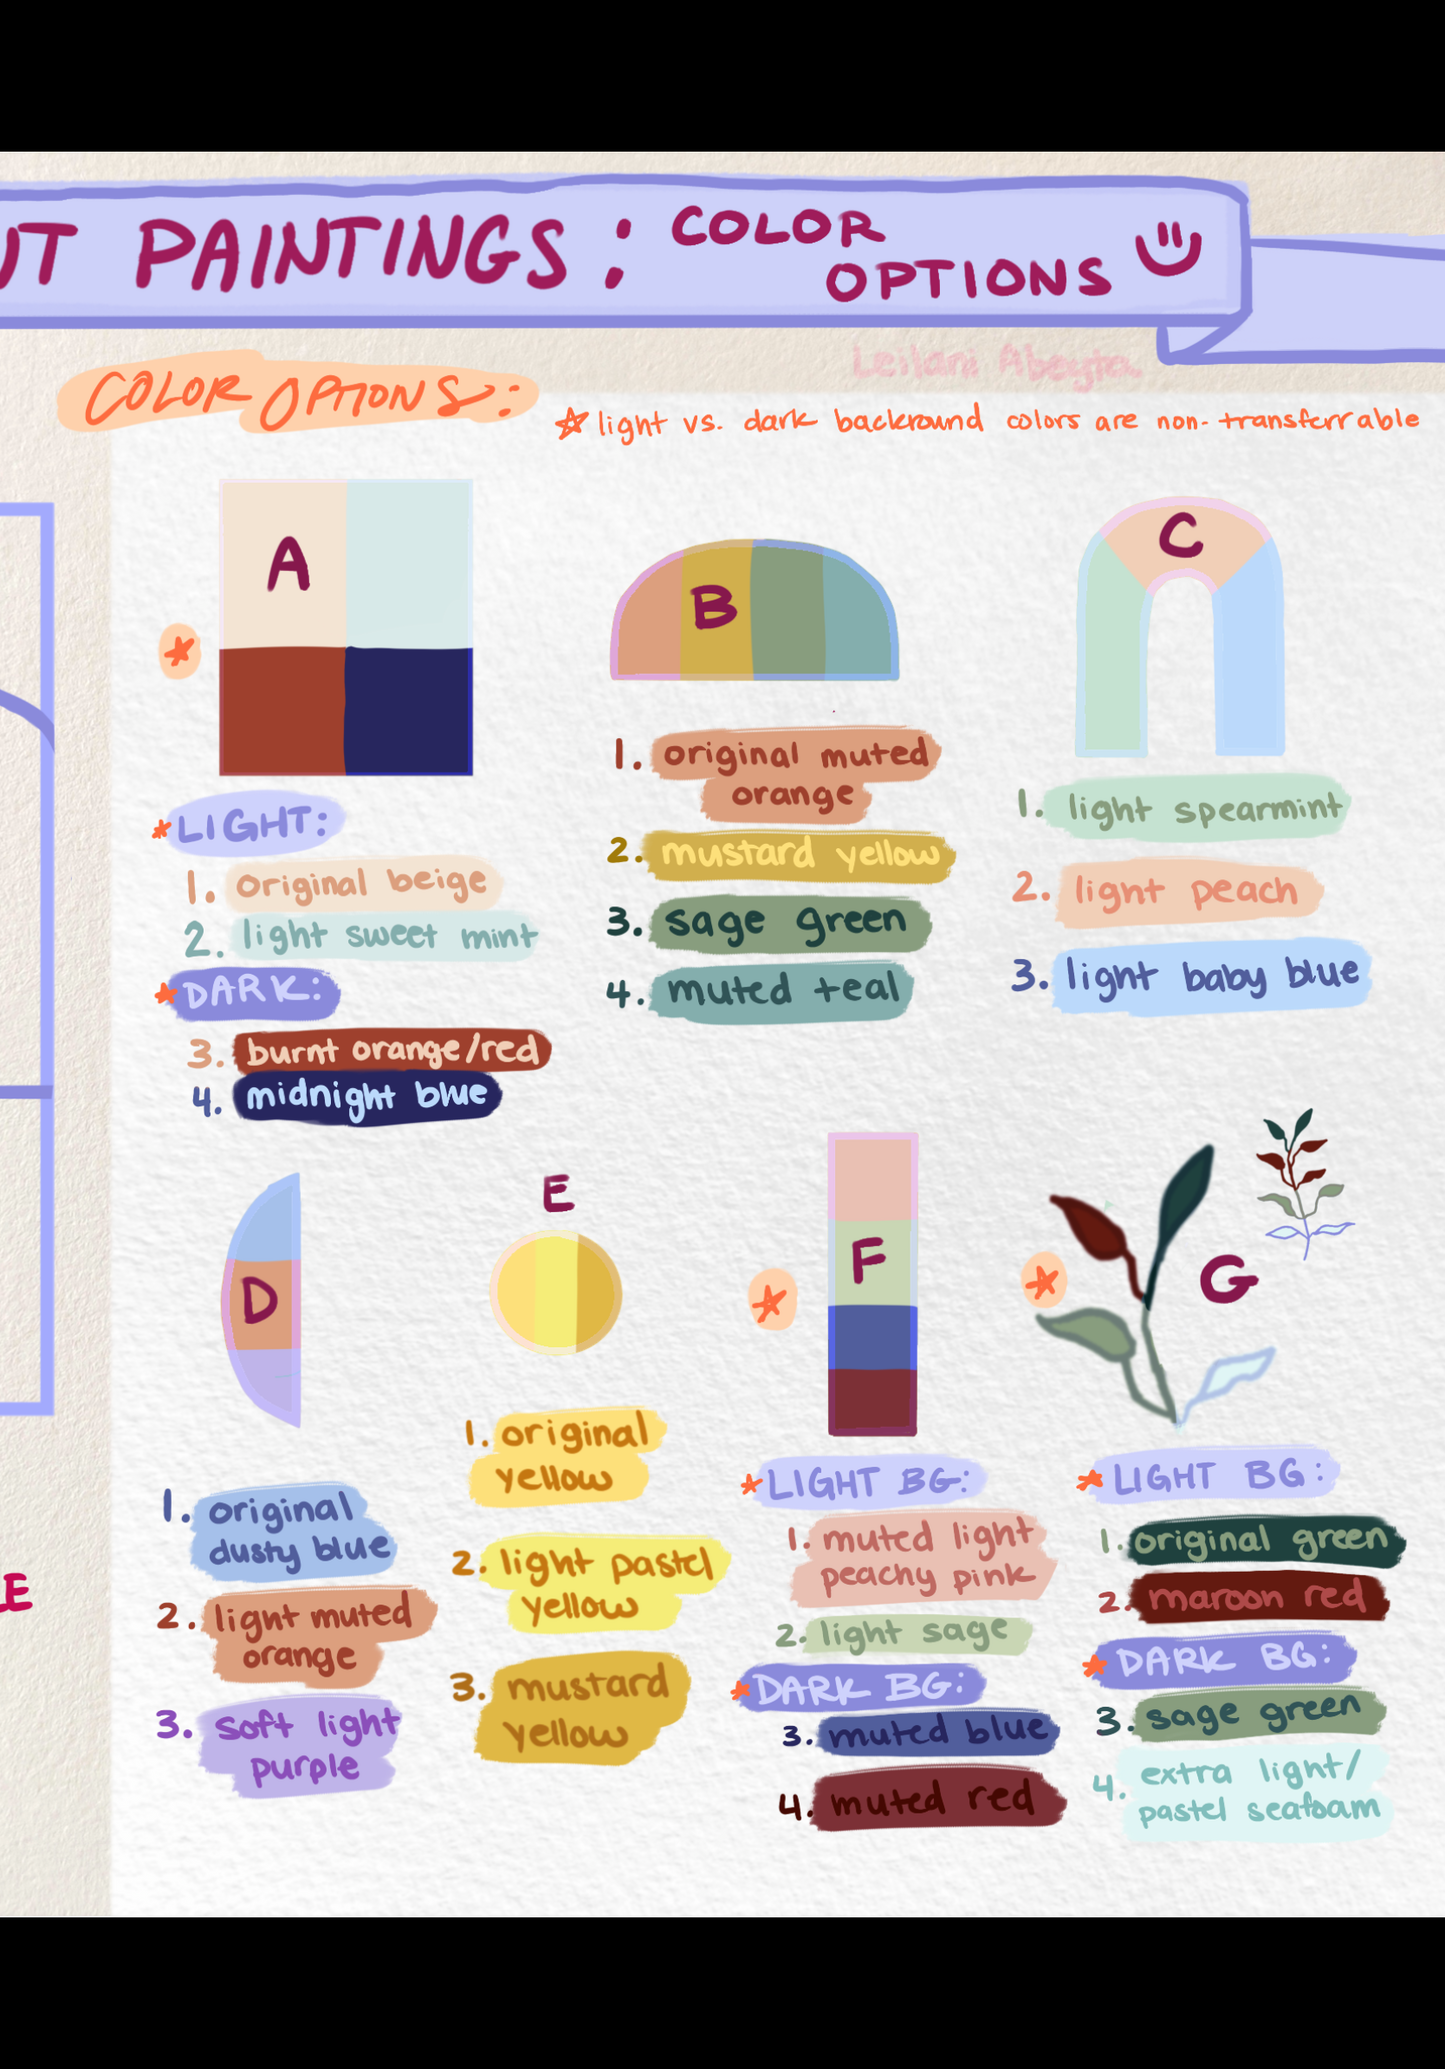 UT PAINTINGS: COLOR
OPTIONS
Leilani Abeyta
COLOR OPTIONS:
light vs. dark backround colors are non-transferrable
A
B
C
1. original muted
orange
2. mustard yellow
3. sage green
4. muted teal
1. light spearmint
2. light peach
3. light baby blue
*LIGHT:
1. original beige
2. light sweet mint
*DARK:
3. burnt orange/red
4. midnight blue
D
E
F
G
1. original
dusty blue
2. light muted
orange
3. soft light
purple
1. original
yellow
2. light pastel
yellow
3. mustard
yellow
*LIGHT BG:
1. muted light
peachy pink
2. light sage
*DARK BG:
3. muted blue
4. muted red
*LIGHT BG:
1. original green
2. maroon red
*DARK BG:
3. sage green
4. extra light/
pastel seafoam
E